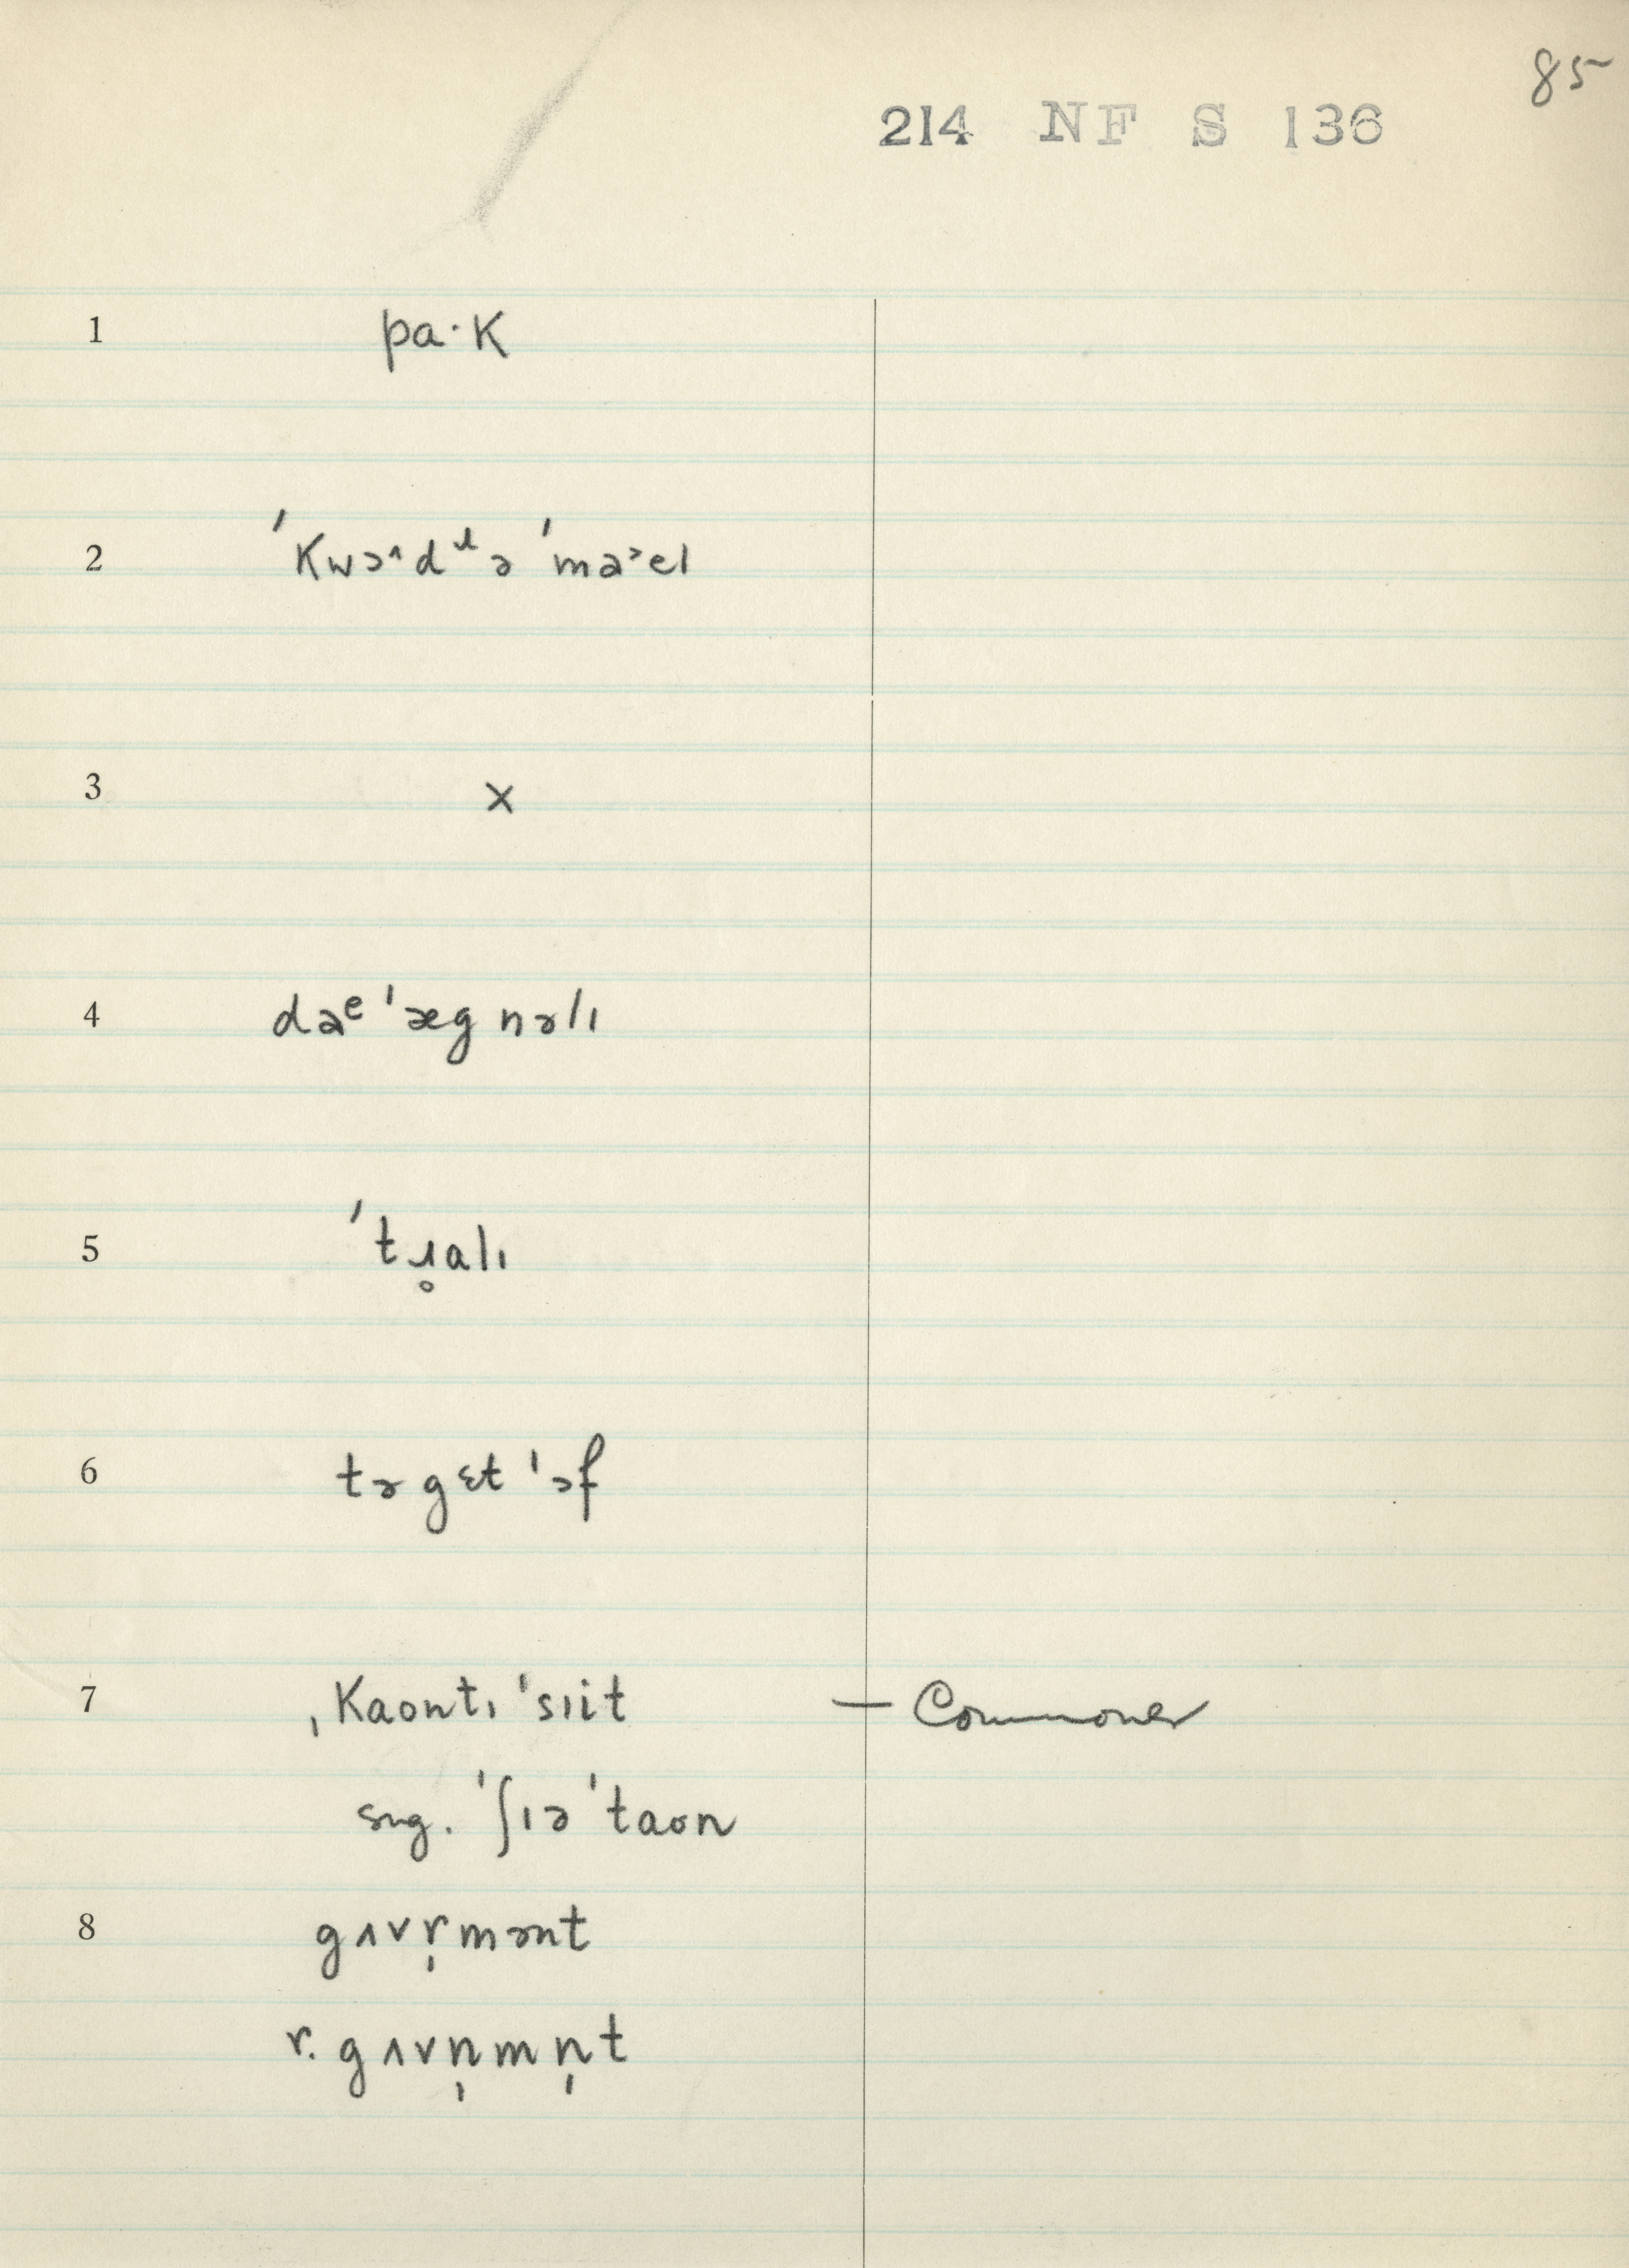 85
214 NF S 136
1 pa·k
2 ˈkwɔ˄dᵊɹə ˈma˃el
3 x
4 daᵉ ˈæg nəlɪ
5 ˈtɹ̥alɪ
6 tə gɛt ˈɔf
7 ˌkaontɪ ˈsɪit — Commoner
sug. ˈʃɪə ˈtaon
8 gʌvr̩mənt
r. gʌvn̩mn̩t